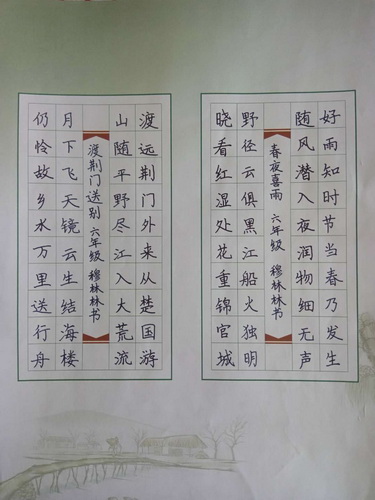 好雨知时节当春乃发生
随风潜入夜润物细无声
春夜喜雨 六年级 穆林林书
野径云俱黑江船火独明
晓看红湿处花重锦官城
渡远荆门外来从楚国游
山随平野尽江入大荒流
渡荆门送别 六年级 穆林林书
月下飞天镜云生结海楼
仍怜故乡水万里送行舟